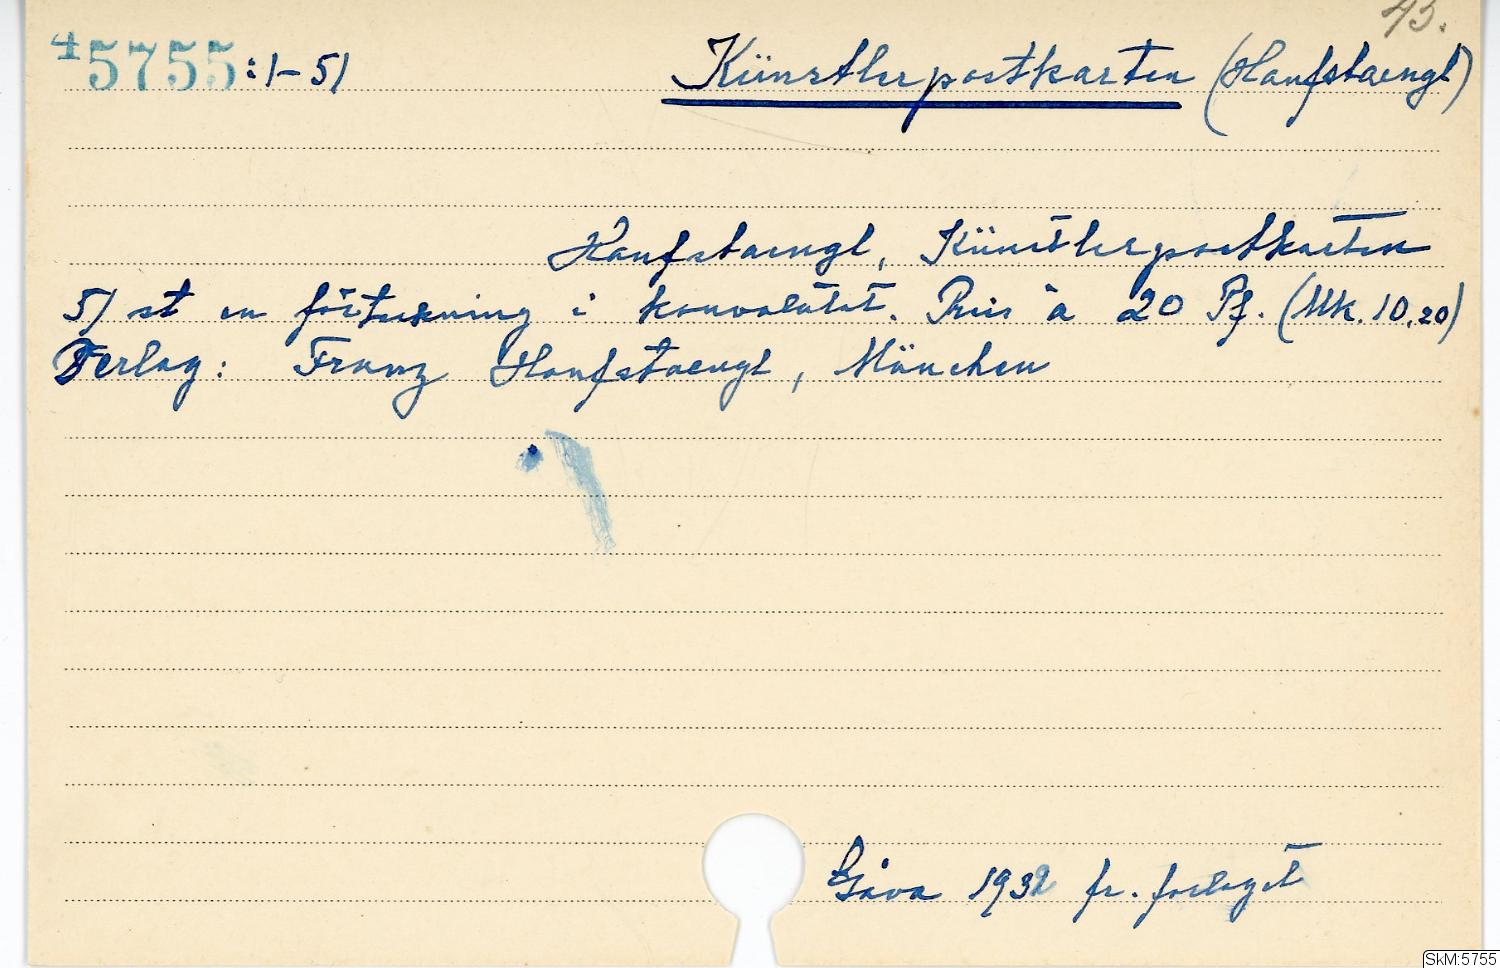 43.
45755:1-51
Künstlerpostkarten (Hanfstaengl)
Hanfstaengl, Künstlerpostkarten
51 st en förteckning i konvolutet. Preis à 20 Pf. (Mk. 10,20)
Verlag: Franz Hanfstaengl, München
Gåva 1932 fr. förlaget
SkM:5755